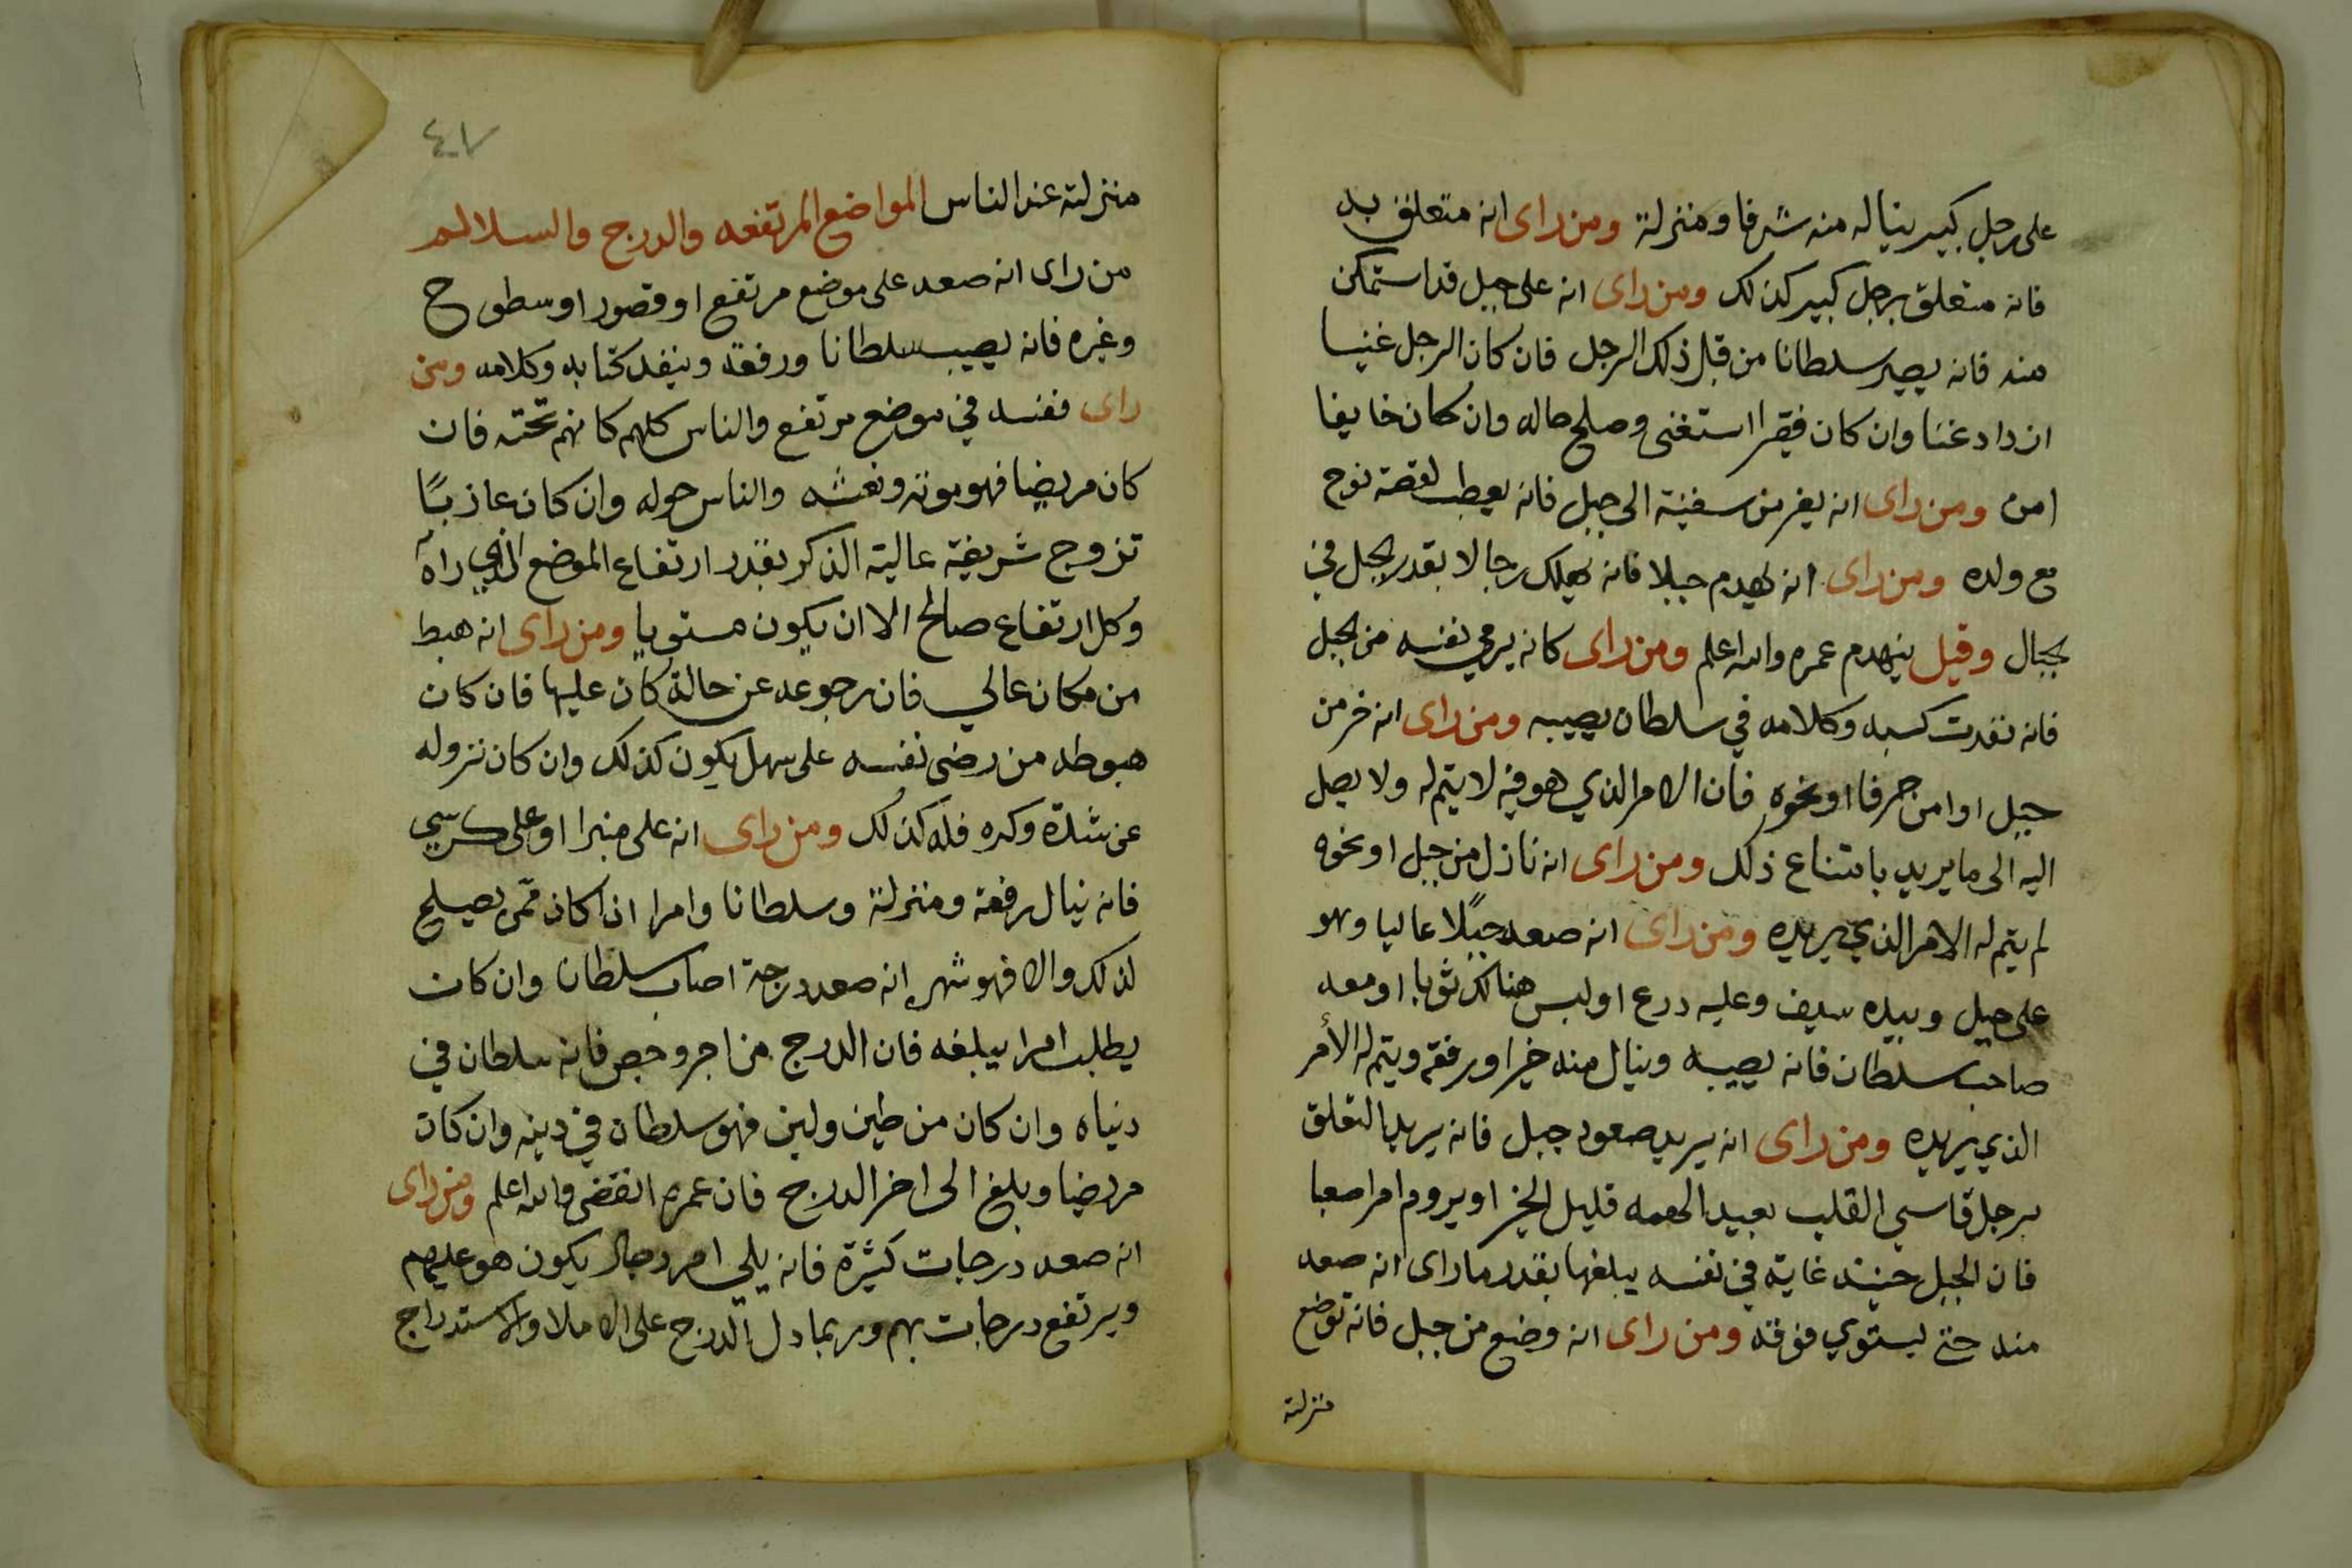 على رجل كبير ينال منه شرفا ومنزلة ومن راى انه متعلق به
فانه متعلق برجل كبير كذلك ومن راى انه على جبل قد استمكن
منه فانه يصير سلطانا من قبل ذلك الرجل فان كان الرجل غنيا
ازداد غنا وان كان فقيرا استغنى وصلح حاله وان كان خايفا
امن ومن راى انه يفر من سفينة الى جبل فانه يعطب لقصة نوح
مع ولده ومن راى انه يهدم جبلا فانه يهلك رجالا بقدر الجبل في
الجبال وقيل ينهدم عمره والله اعلم ومن راى كانه يرمي نفسه من الجبل
فانه نفدت كسبه وكلامه في سلطان يصيبه ومن راى انه خر من
جبل او امن جرفا او نحوه فان الامر الذي هو فيه لا يتم له ولا يصل
اليه الى ما يريد بامتناع ذلك ومن راى انه نازل من جبل او نحوه
لم يتم له الامر الذي يريده ومن راى انه صعد جبلا عاليا وهو
على جبل وبيده سيف وعليه درع او لبس هنالك ثوبا او معه
صاحب سلطان فانه يصيبه وينال منه خيرا ورفعة ويتم له الأمر
الذي يريده ومن راى انه يريد صعود جبل فانه يريد التعلق
برجل قاسي القلب بعيد الهمه قليل الخير او يروم امرا صعبا
فان الجبل حينئد غاية في نفسه يبلغها بقدر ما راى انه صعد
منه حتى ليستوي فوقه ومن راى انه وضع من جبل فانه توضع
منزلته
٤٧
منزلته عند الناس المواضع المرتفعه والدرج والسلالم
من راى انه صعد على موضع مرتفع او قصور او سطوح
وغيره فانه يصيب سلطانا ورفعة وينفد كتابه وكلامه ومن
راى نفسه في موضع مرتفع والناس كلهم كانهم تحته فان
كان مريضا فهو موته ونعشه والناس حوله وان كان عاذبًا
تزوج شريفة عالية الذكر بقدر ارتفاع الموضع الذي راه
وكل ارتفاع صالح الا ان يكون مستويا ومن راى انه هبط
من مكان عالي فان رجوعه عن حالة كان عليها فان كان
هبوطه من رضى نفسه على سهل يكون كذلك وان كان نزوله
عن شدة وكره فله كذلك ومن راى انه على منبرا او على كرسي
فانه ينال رفعة ومنزلة وسلطانا وامرا اذا كان ممن يصلح
لذلك والا فهو شهر انه صعد درجة اصاب سلطان وان كان
يطلب امرا يبلغه فان الدرج من اجر وجص فانه سلطان في
دنياه وان كان من طين ولبن فهو سلطان في دينه وان كان
مريضا وبلغ الى اخر الدرج فان عمره انقضى والله اعلم ومن راى
انه صعد درجات كثيرة فانه يلي امر رجال يكون هو عليهم
ويرتفع درجات بهم وربما دل الدرج على الاملا والاستدراج